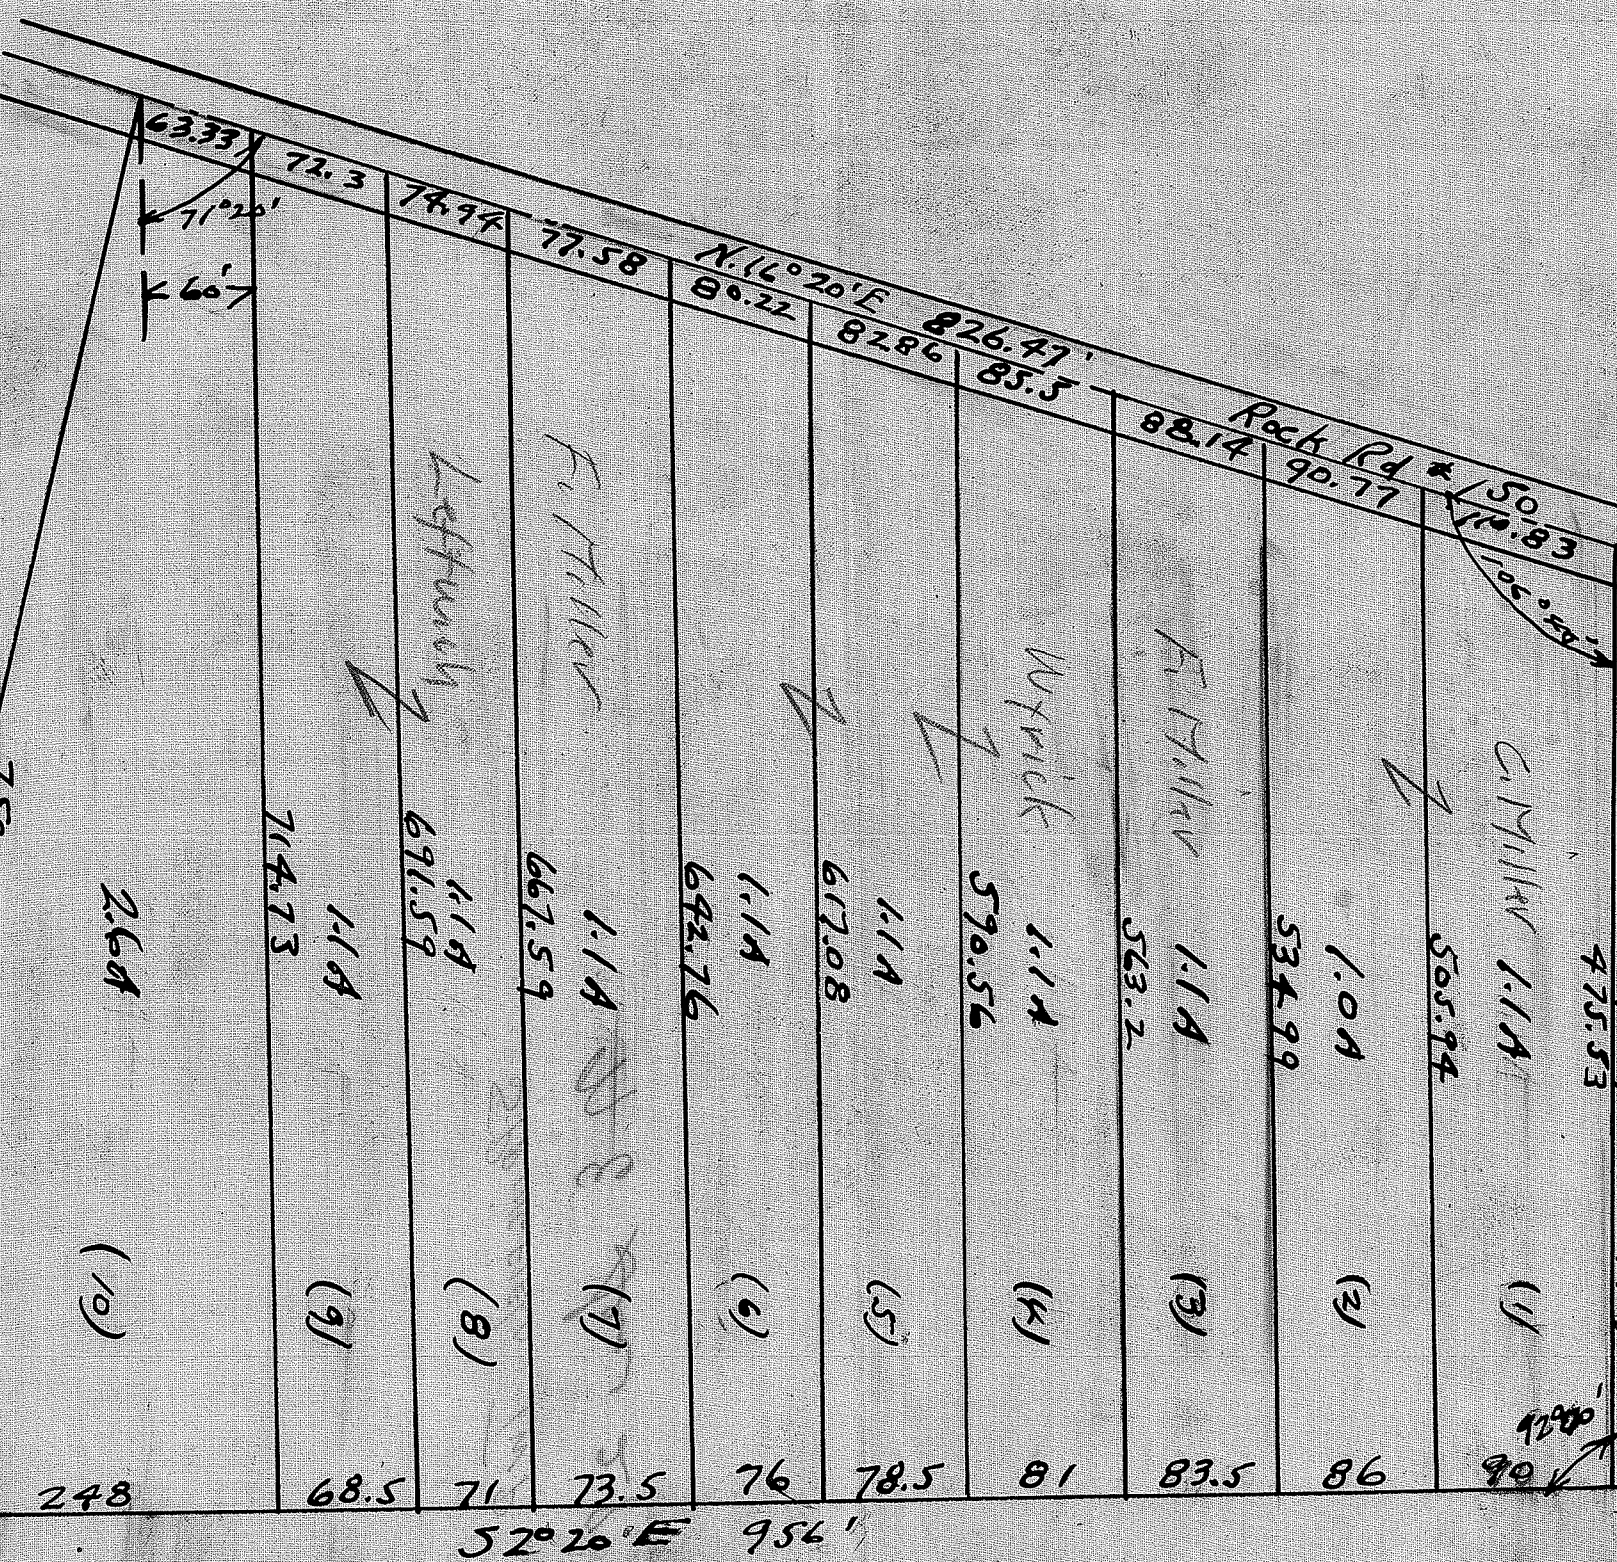 63.33
72.3
74.94
77.58
80.22
82.86
85.5
88.14
90.77
110.83
N.16°20'E 826.47'
Rock Rd # 150
71°20'
60'
106°50'
Leftwich
F. Miller
Wyrick
F. Miller
C. Miller
2.6A
714.73
1.1A
691.59
1.1A
667.59
1.1A
642.76
1.1A
617.08
1.1A
590.56
1.1A
563.2
1.1A
534.99
1.0A
505.94
1.1A
475.53
(10)
(9)
(8)
(7)
(6)
(5)
(4)
(3)
(2)
(1)
248
68.5
71
73.5
76
78.5
81
83.5
86
90
S2°20'E 956'